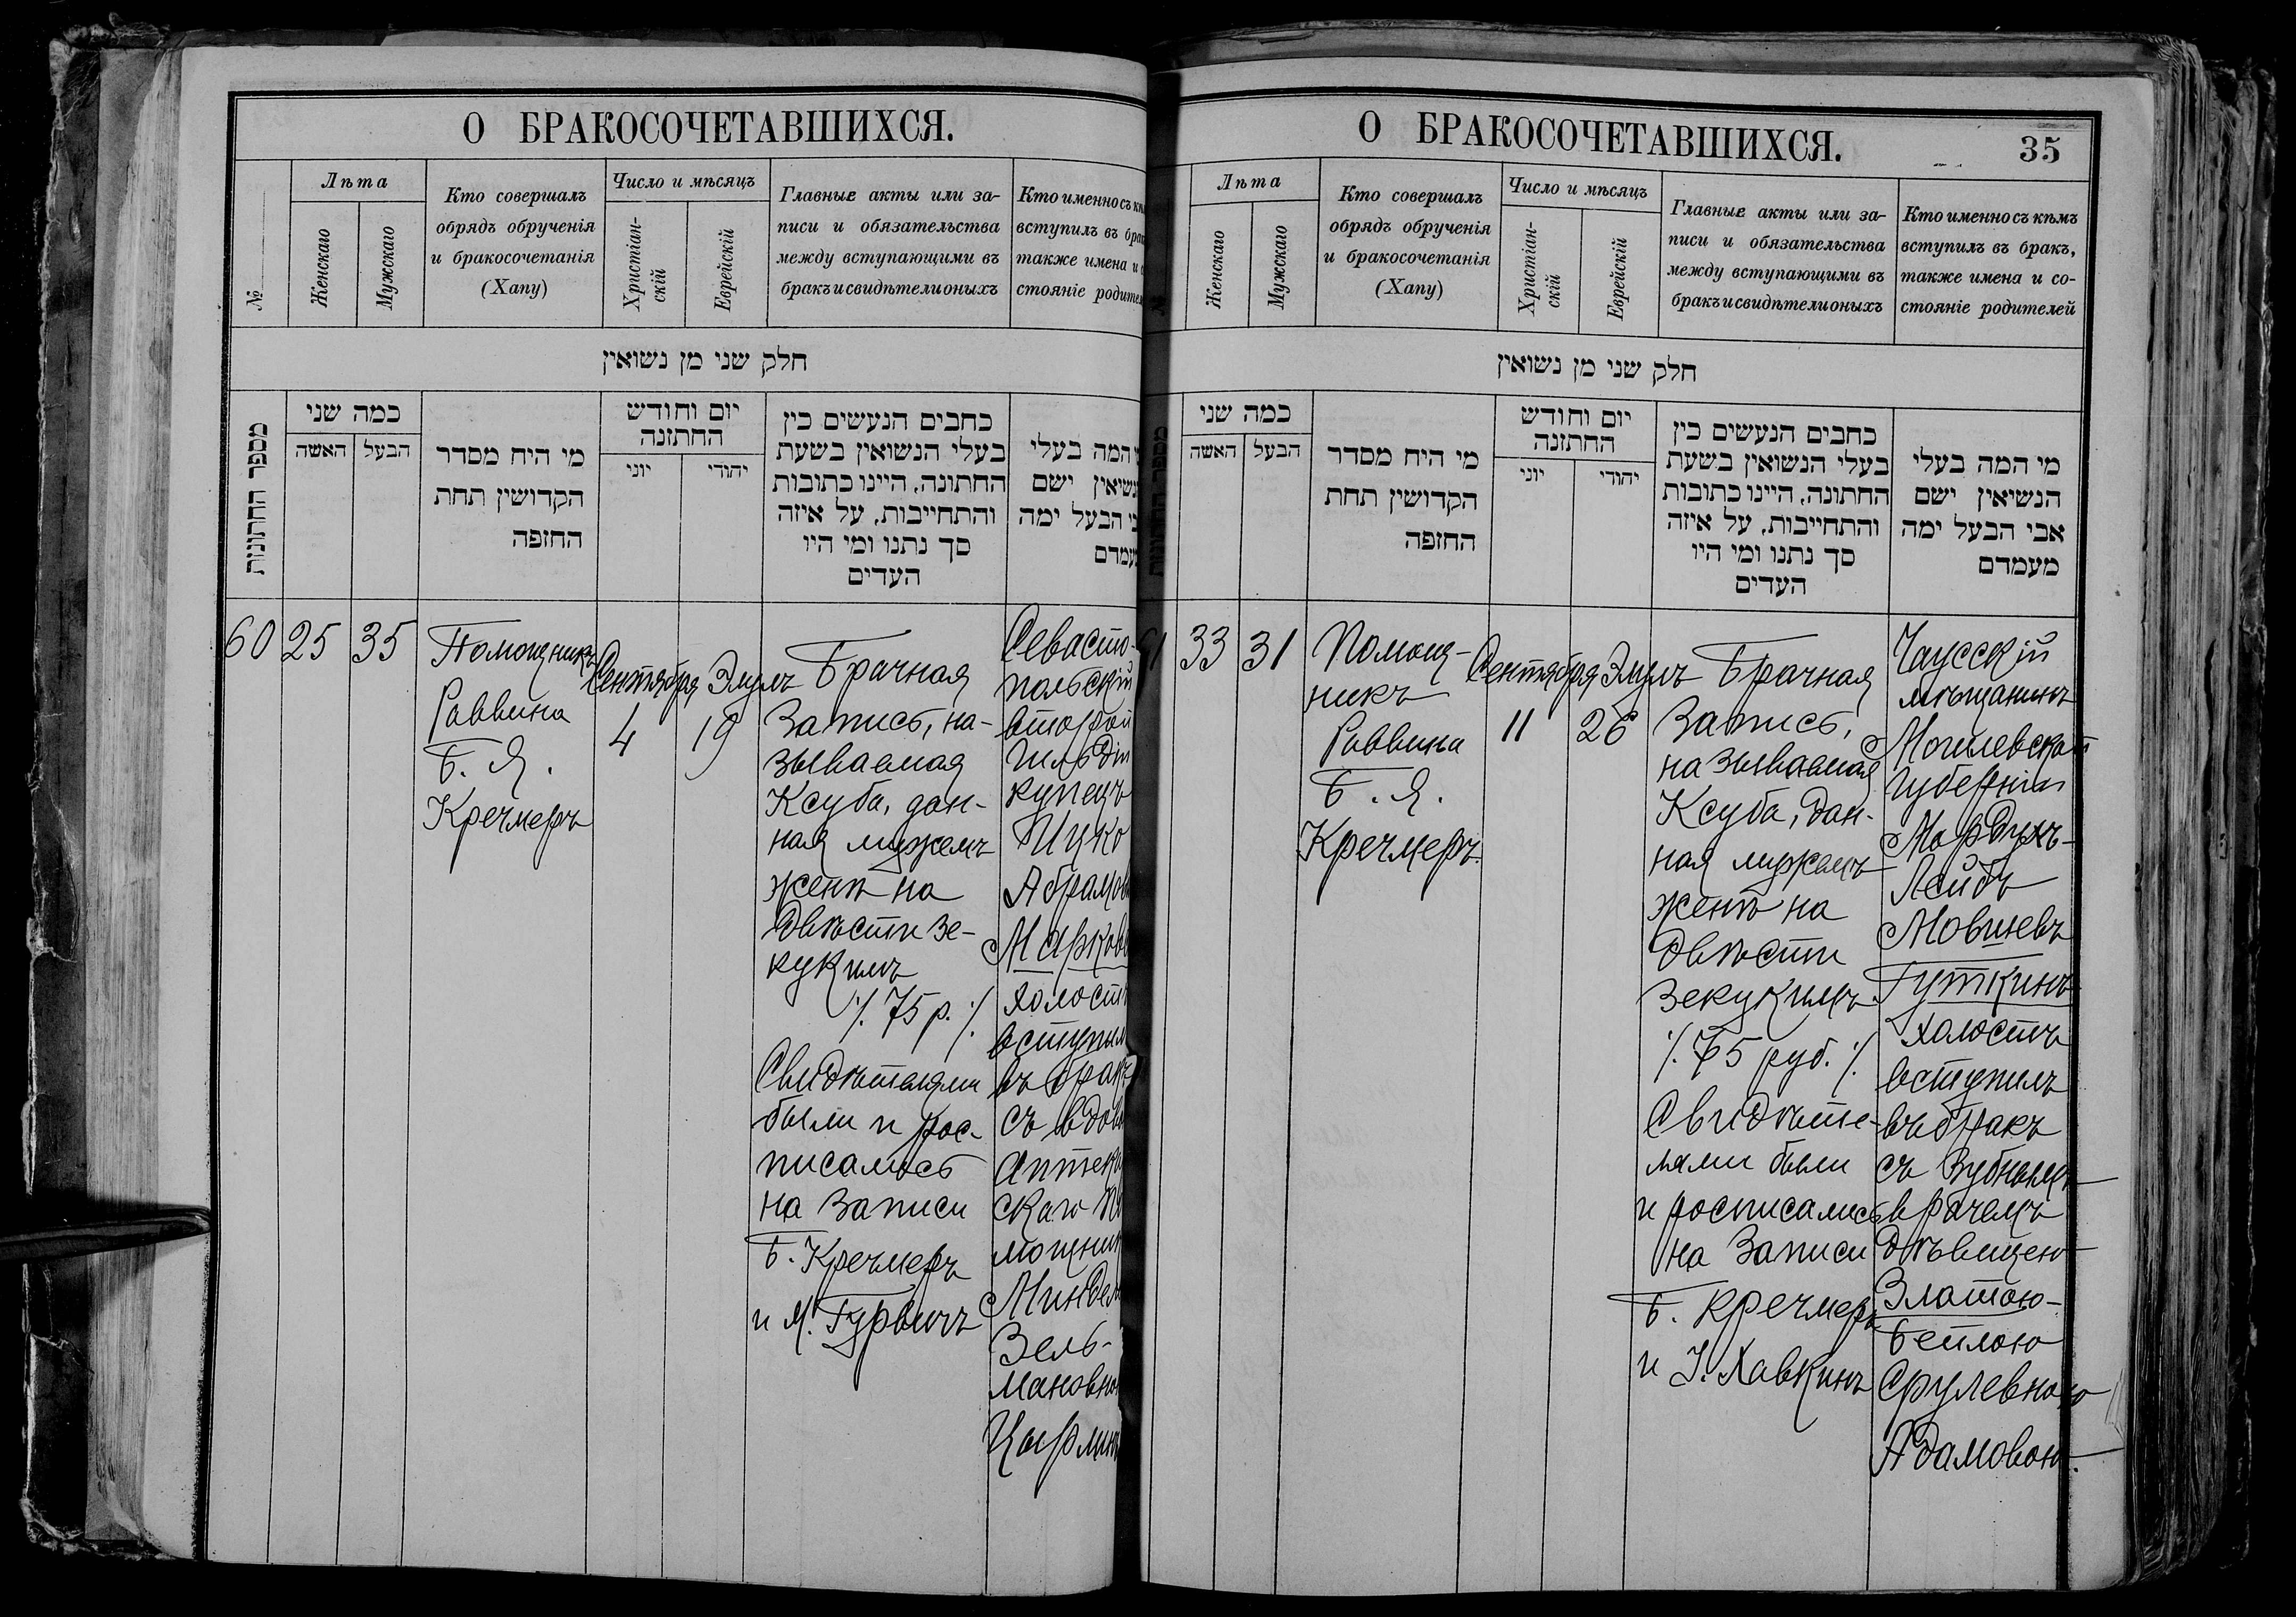 О БРАКОСОЧЕТАВШИХСЯ.
№
Лѣта
Женскаго
Мужскаго
Кто совершалъ
обрядъ обрученія
и бракосочетанія
(Хапу)
Число и мѣсяцъ
Христіан-
скій
Еврейскій
Главные акты или за-
писи и обязательства
между вступающими въ
бракъ и свидѣтели оныхъ
Кто именно съ
вступилъ въ
также имена и
стояніе
חלק שני מן נשואין
מספר החתונות
כמה שני
האשה
הבעל
מי היח מסדר
הקדושין תחת
החופה
יום וחודש
החתונה
יוני
יהודי
כחבים הנעשים כין
בעלי הנשואין בשעת
החתונה, היינו כתובות
והתחייבות, על איזה
סך נתנו ומי היו
העדים
המה בעלי
ישם
הבעל ימה
60
25
35
Помощникъ
Раввина
Б. Я.
Кречмеръ
Сентября
4
Элулъ
19
Брачная
Запись, на-
зываемая
Ксуба, дан-
ная мужемъ
женѣ на
двѣсти зе-
кукимъ
⁒ 75 р. ⁒
Свидѣтелями
были и рос-
писались
на записи
Б. Кречмеръ
и М. Гурвичъ
Севасто-
польскій
второй
купецъ
Ицко
въ бракъ
съ
Зель-
О БРАКОСОЧЕТАВШИХСЯ.
35
Лѣта
Женскаго
Мужскаго
Кто совершалъ
обрядъ обрученія
и бракосочетанія
(Хапу)
Число и мѣсяцъ
Христіан-
скій
Еврейскій
Главные акты или за-
писи и обязательства
между вступающими въ
бракъ и свидѣтели оныхъ
Кто именно съ кѣмъ
вступилъ въ бракъ,
также имена и со-
стояніе родителей
חלק שני מן נשואין
כמה שני
האשה
הבעל
מי היח מסדר
הקדושין תחת
החופה
יום וחודש
החתונה
יוני
יהודי
כחבים הנעשים כין
בעלי הנשואין בשעת
החתונה, היינו כתובות
והתחייבות, על איזה
סך נתנו ומי היו
העדים
מי המה בעלי
הנשיאין ישם
אבי הבעל ימה
מעמדם
33
31
Помощ-
никъ
Раввина
Б. Я.
Кречмеръ.
Сентября
11
Элулъ
26
Брачная
Запись,
называемая
Ксуба, дан-
ная мужемъ
женѣ на
двѣсти
зекукимъ
⁒ 75 руб. ⁒
Свидѣте-
лями были
и росписались
на записи
Б. Кречмеръ
и І. Хавкинъ
Чаусскій
мѣщанинъ
Могилевской
губерніи
Мордухъ-
Лейбъ
Мовшевъ
Гуткинъ
холостъ
вступилъ
въ бракъ
съ зубнымъ
врачемъ
дѣвицею
Златою-
Бейлою
Срулевною
Адамовою.